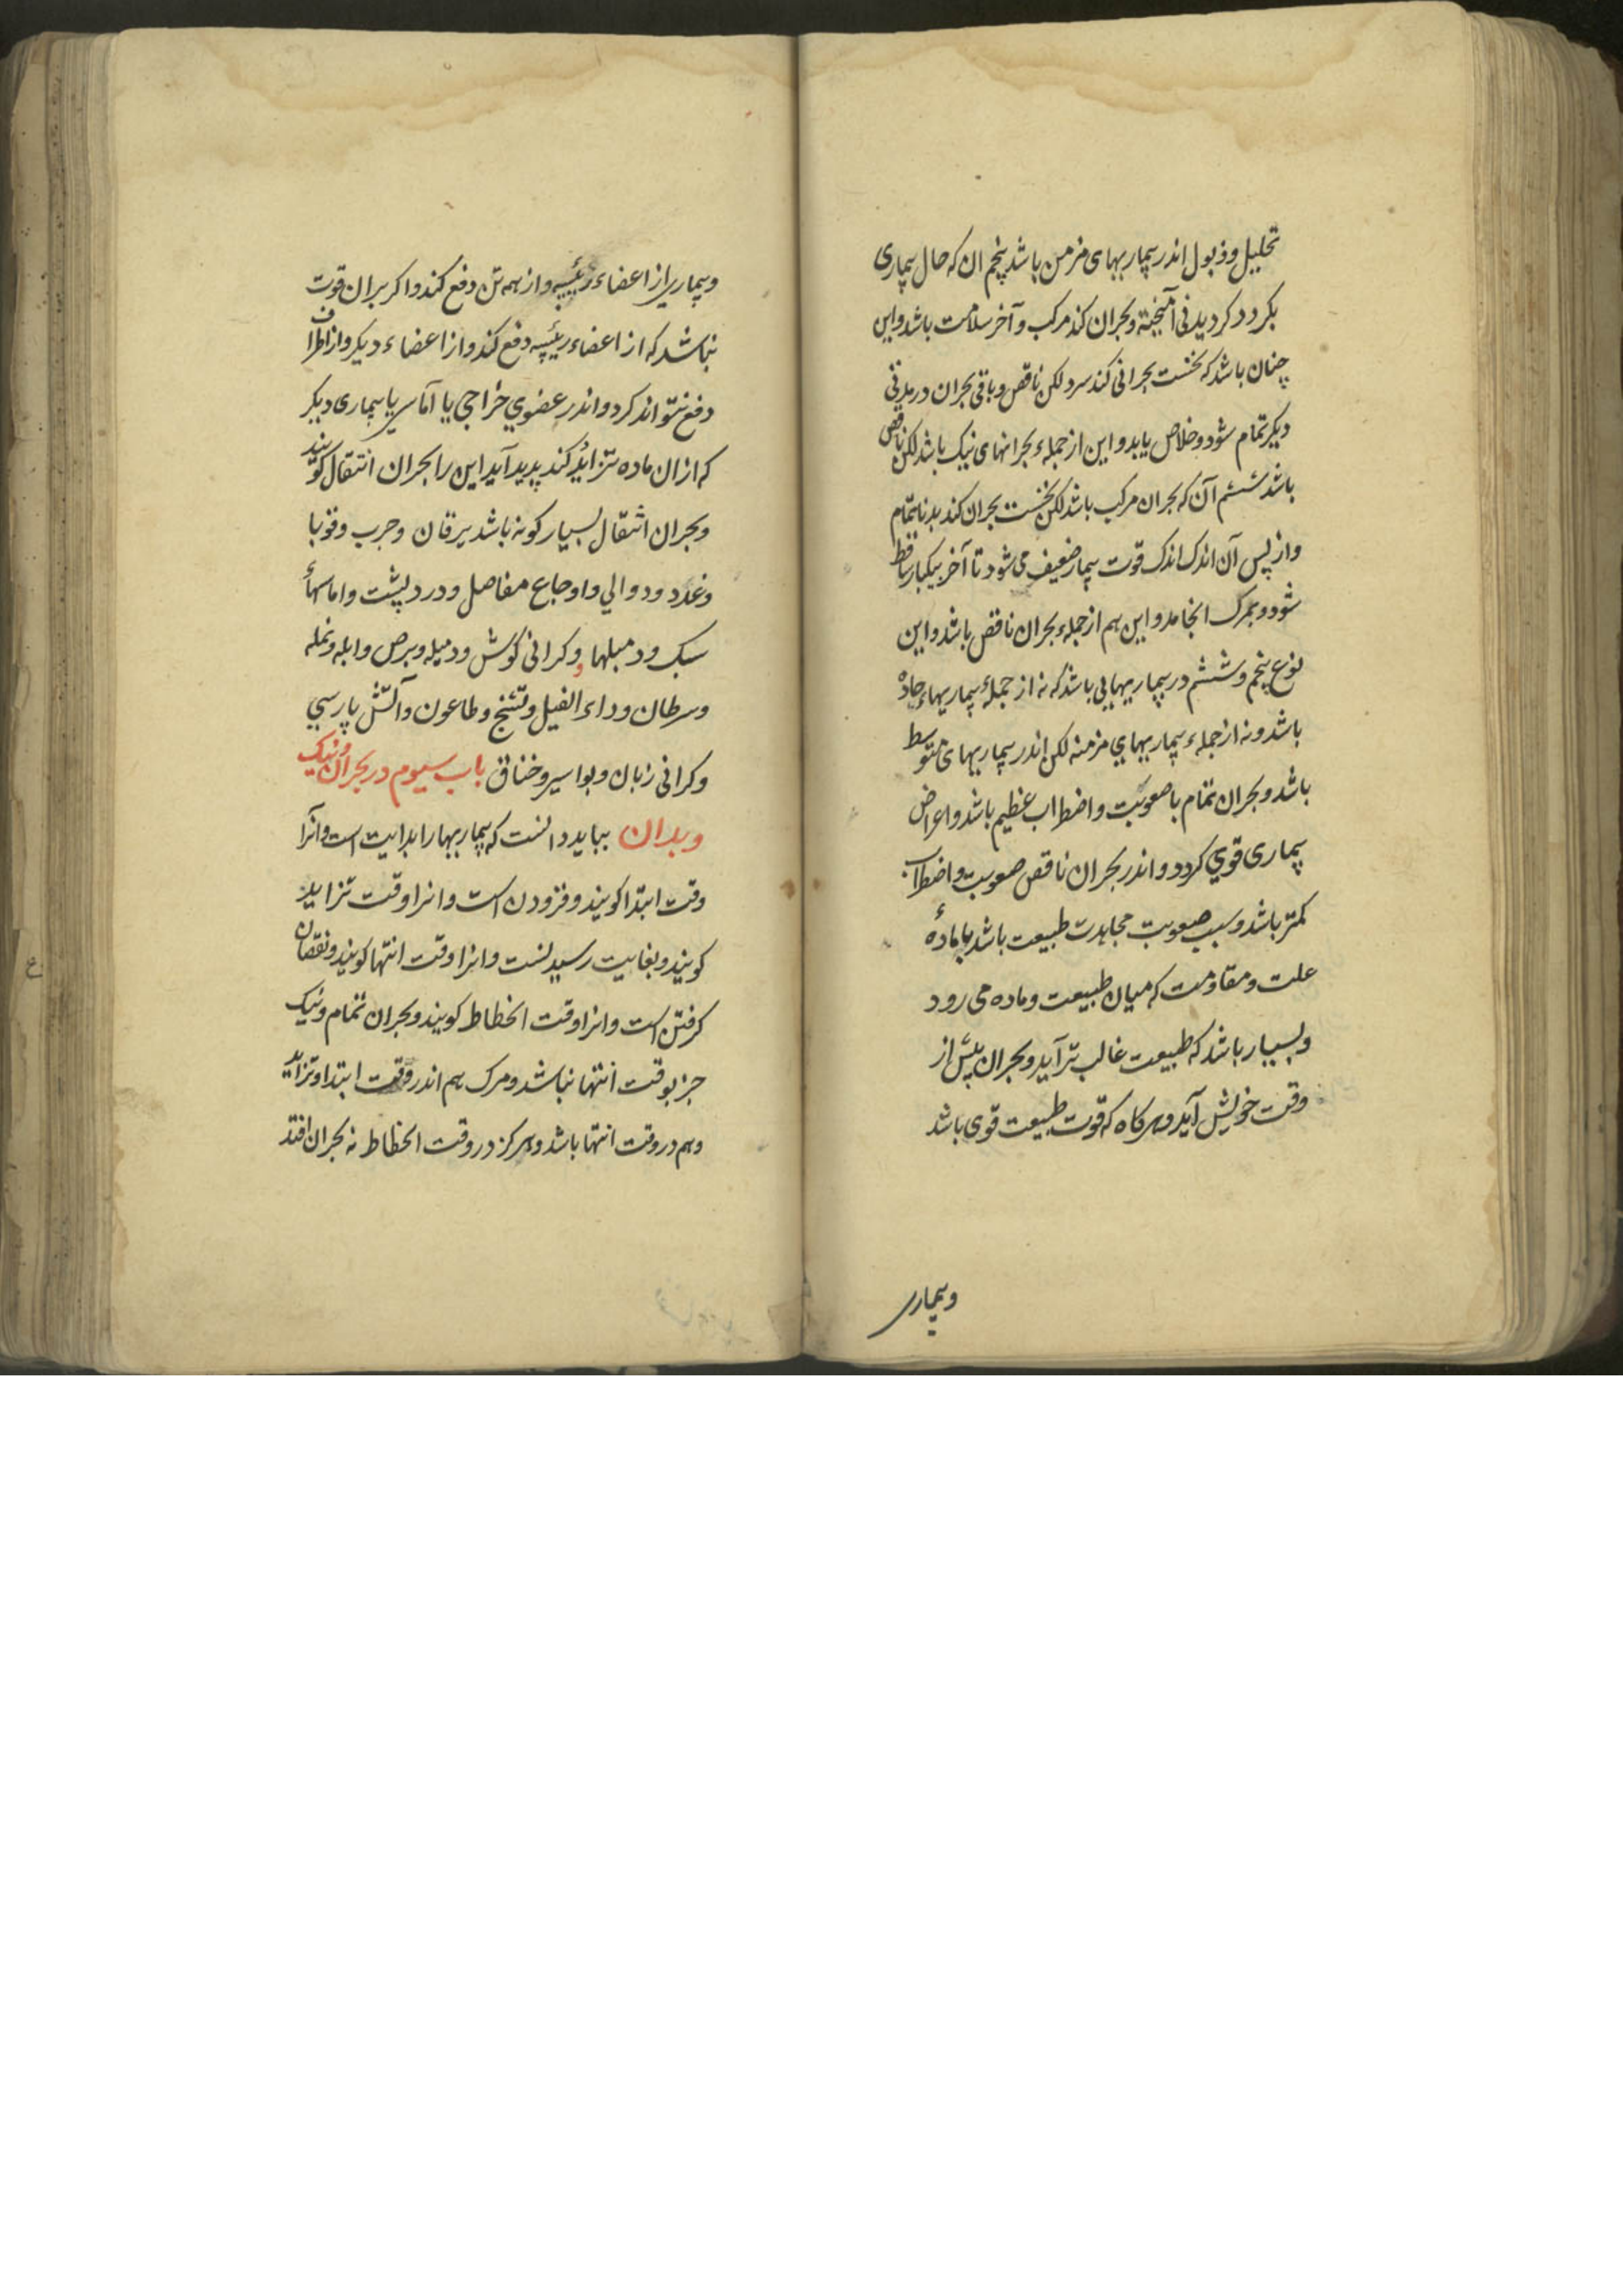 تحلیل و ذبول اندر بیماریهای مزمن باشد پنجم ان که حال بیماری
بکردد کردیدنی آمیخته و بحران کند مرکب و آخر سلامت باشد و این
چنان باشد که نخست بحرانی کند سره لکن ناقص و باقی بحران در مدتی
دیکر تمام شود و خلاص یابد و این از جملهء بحرانهای نیک باشد لکن ناقص
باشد ششم آن که بحران مرکب باشد لکن نخست بحران کند بد ناتمام
و از پس آن اندک اندک قوت بیمار ضعیف می شود تا آخر بیکبار ساقط
شود و بمرک انجامد و این هم از جملهء بحران ناقص باشد و این
نوع پنجم و ششم در بیماریهایی باشد که نه از جملهٔ بیماریهاء حاده
باشد و نه از جملهء بیماریهاي مزمنه لکن اندر بیماریهای متوسط
باشد و بحران تمام با صعوبت و اضطراب عظیم باشد و اعراض
بیماری قوي کردد و اندر بحران ناقص صعوبت و اضطراب
کمتر باشد و سبب صعوبت مجاهدت طبیعت باشد با مادهٔ
علت و مقاومت که میان طبیعت و ماده می رود
و بسیار باشد که طبیعت غالب تر آید و بحران پیش از
وقت خویش آید و هرکاه که قوت طبیعت قوی باشد
و بیماری
و بیماری از اعضاء رئیسه و از همه تن دفع کند و اکر بران قوت
نباشد که از اعضاء رئیسه دفع کند و از اعضاء دیکر و از اطراف
دفع نتواند کرد و اندر عضوي خراجی یا آماسی یا بیماری دیکر
که ازان ماده تزاید کند پدید آید این را بحران انتقال کویند
و بحران انتقال بسیار کونه باشد یرقان و جرب و قوبا
و غدد و دوالي و اوجاع مفاصل و درد پشت و اماسهأ
سبک و دمبلها و کرانی کوش و دمیله و برص و ابله و نمله
و سرطان و داء الفیل و تشنج و طاعون و آتش پارسي
و کرانی زبان و بواسیر و خناق باب سیوم در بحران نیک
و بد ان بباید دانست که بیماریها را بدایت است و آنرا
وقت ابتدا کویند و فزودن است و انرا وقت تزاید
کویند و بغایت رسیدنست و انرا وقت انتها کویند و نقصان
کرفتن است و انرا وقت انحطاط کویند و بحران تمام و نیک
جز بوقت انتها نباشد و مرک هم اندر وقت ابتدا و تزاید
و هم در وقت انتها باشد و هرکز در وقت انحطاط نه بحران افتد